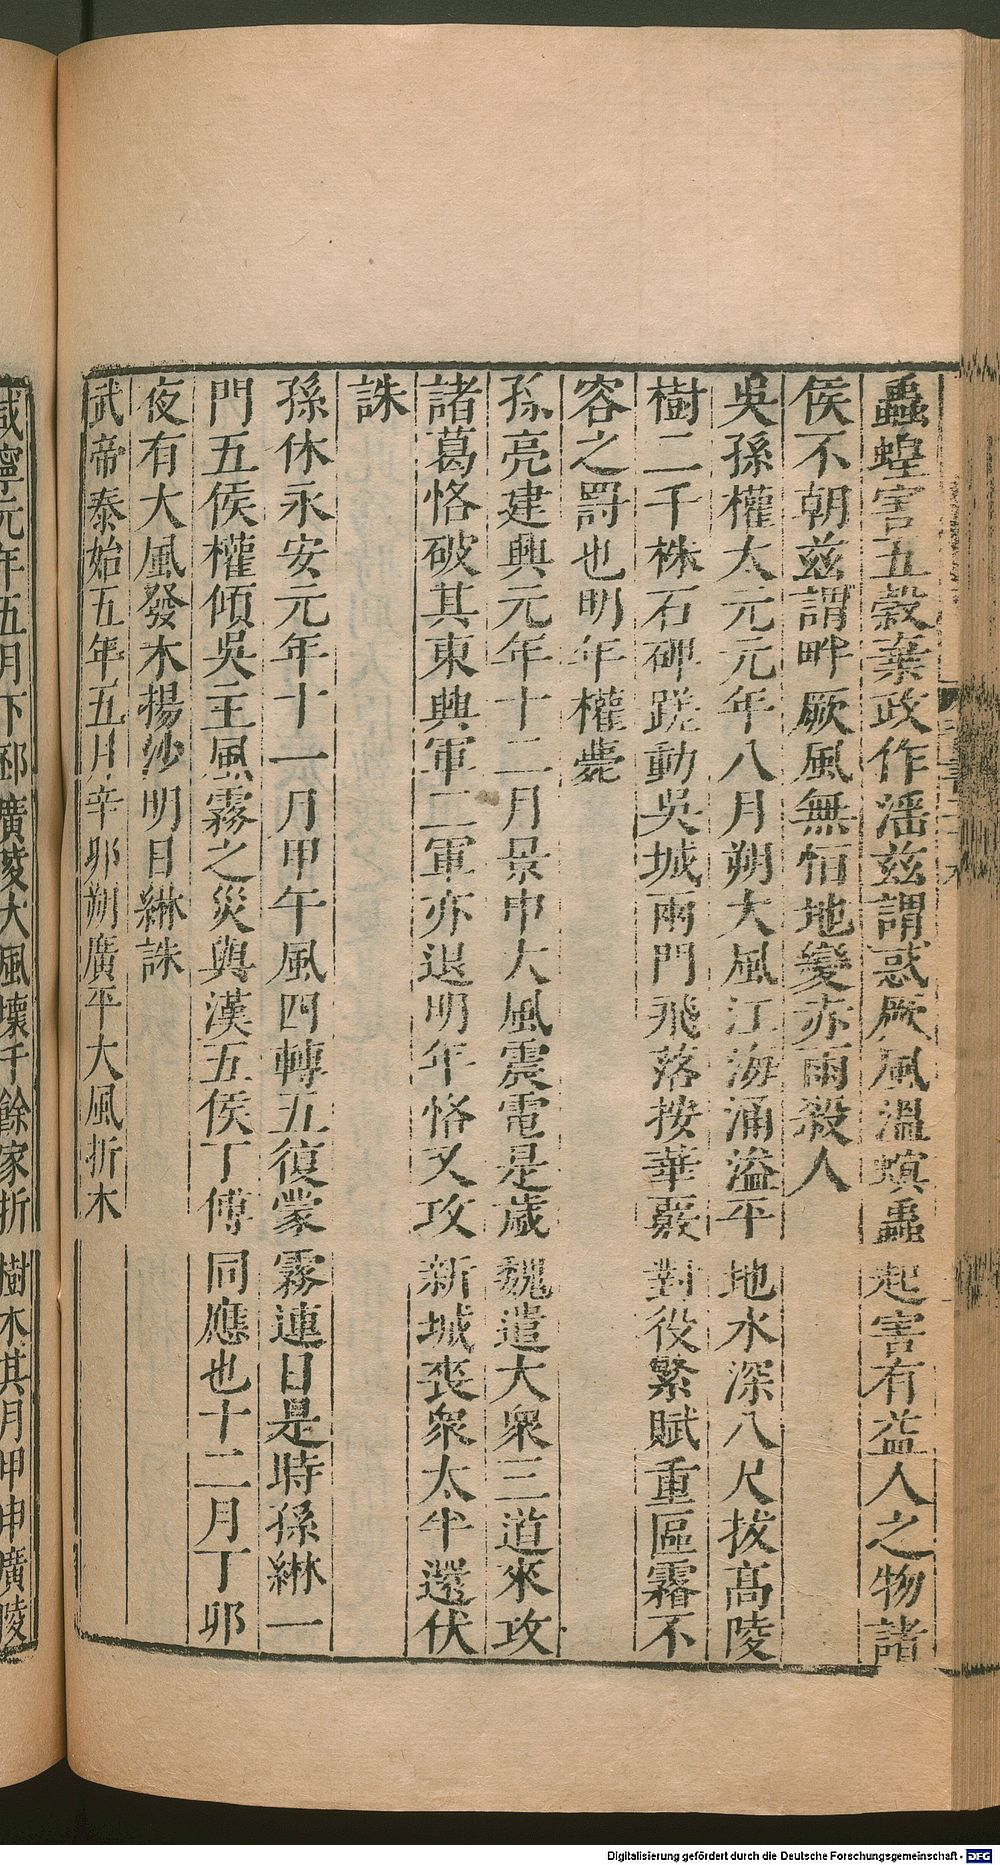 蟲蝗害五穀棄政作淫茲謂惑厥風溫螟蟲起害有益人之物諸
侯不朝茲謂畔厥風無恒地變赤雨殺人
吳孫權太元元年八月朔大風江海涌溢平地水深八尺拔高陵
樹二千株石碑蹉動吳城兩門飛落按華覈對役繁賦重區霿不
容之罰也明年權薨
孫亮建興元年十二月景申大風震電是歲魏遣大衆三道來攻
諸葛恪破其東興軍二軍亦退明年恪又攻新城喪衆太半還伏
誅
孫休永安元年十一月甲午風四轉五復蒙霧連日是時孫綝一
門五侯權傾吳主風霧之災與漢五侯丁傅同應也十二月丁卯
夜有大風發木揚沙明日綝誅
武帝泰始五年五月辛卯朔廣平大風折木
咸寧元年五月下邳廣陵大風壞千餘家折樹木其月甲申廣陵
Digitalisierung gefördert durch die Deutsche Forschungsgemeinschaft - DFG